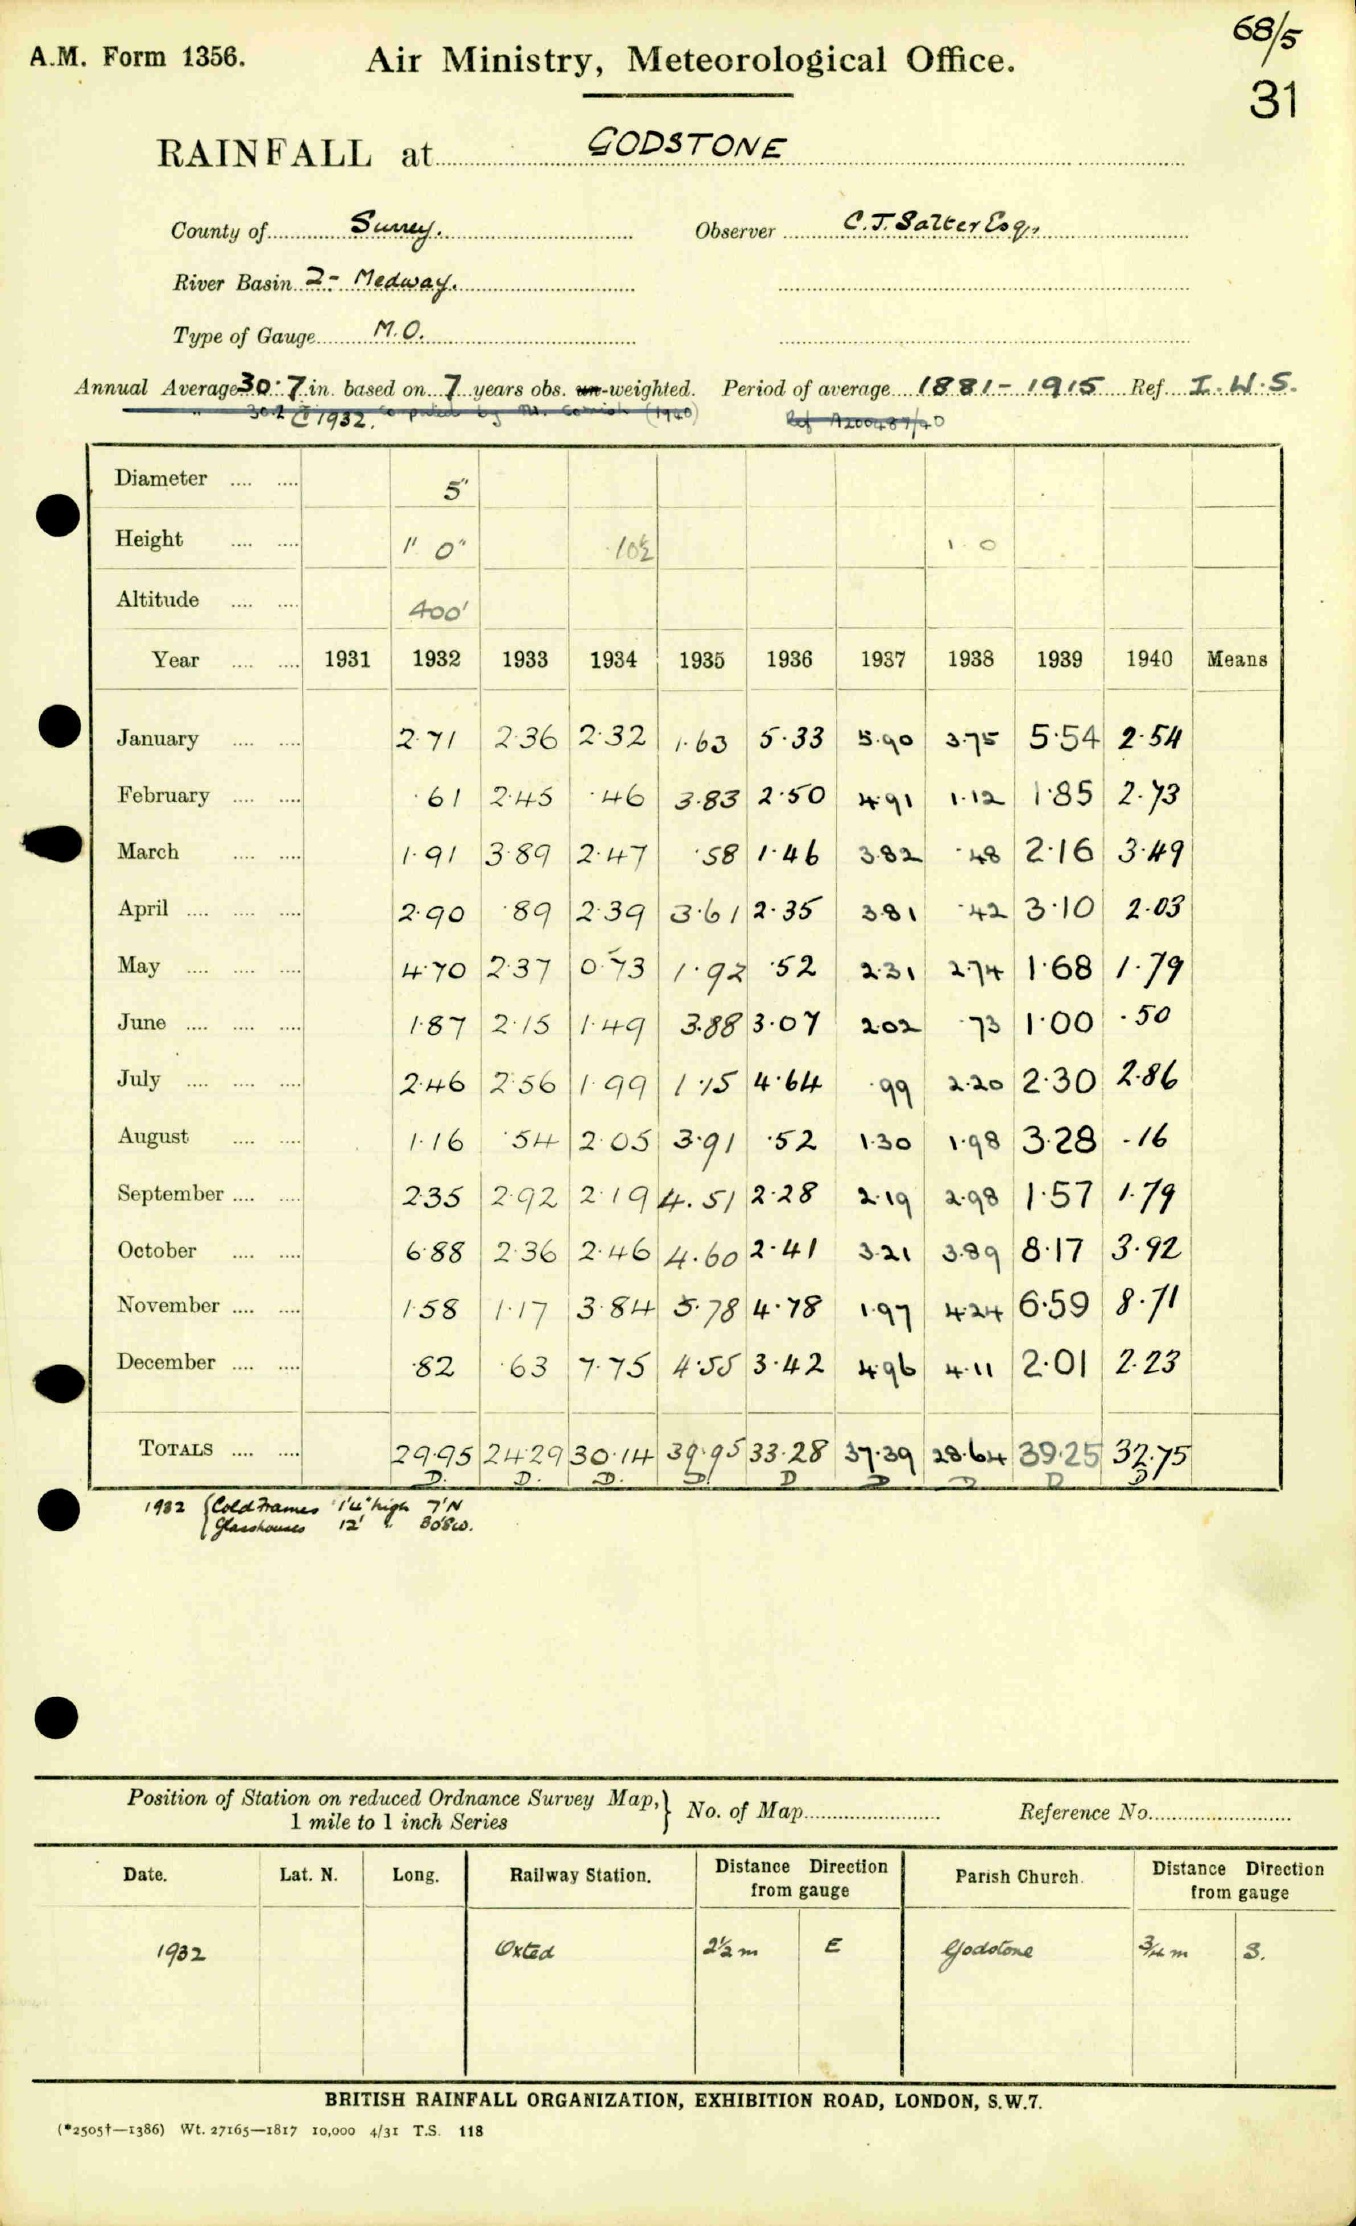 68/5
A.M. Form 1356. Air Ministry, Meteorological Office.
31
RAINFALL at GODSTONE
County of Surrey. Observer C.J. Salter Esq.,
River Basin 2- Medway.
Type of Gauge M.O.
Annual Average 30.7 in. based on 7 years obs. un-weighted. Period of average 1881-1915 Ref. I.W.S.
" 30.2 C 1932. by (1940) Ref A200487/40
Diameter .... .... 5"
Height .... .... 1" 0" 10½ 1 0
Altitude .... .... 400'
Year .... .... 1931 1932 1933 1934 1935 1936 1937 1938 1939 1940 Means
January .... .... 2.71 2.36 2.32 1.63 5.33 5.90 3.75 5.54 2.54
February .... .... .61 2.45 .46 3.83 2.50 4.91 1.12 1.85 2.73
March .... .... 1.91 3.89 2.47 .58 1.46 3.82 .48 2.16 3.49
April .... .... .... 2.90 .89 2.39 3.61 2.35 3.81 .42 3.10 2.03
May .... .... .... 4.70 2.37 0.73 1.92 .52 2.31 2.74 1.68 1.79
June .... .... .... 1.87 2.15 1.49 3.88 3.07 2.02 .73 1.00 .50
July .... .... .... 2.46 2.56 1.99 1.15 4.64 .99 2.20 2.30 2.86
August .... .... 1.16 .54 2.05 3.91 .52 1.30 1.98 3.28 .16
September .... .... 2.35 2.92 2.19 4.51 2.28 2.19 2.98 1.57 1.79
October .... .... 6.88 2.36 2.46 4.60 2.41 3.21 3.89 8.17 3.92
November .... .... 1.58 1.17 3.84 5.78 4.78 1.97 4.24 6.59 8.71
December .... .... .82 .63 7.75 4.55 3.42 4.96 4.11 2.01 2.23
TOTALS .... .... 29.95 24.29 30.14 39.95 33.28 37.39 28.64 39.25 32.75
D. D. D. D. D D D D D
1932 { Cold Frames 1'4" high 7'N
{ Glasshouses 12' " 30'SW.
Position of Station on reduced Ordnance Survey Map, } No. of Map Reference No.
1 mile to 1 inch Series
Date. Lat. N. Long. Railway Station. Distance Direction from gauge Parish Church. Distance Direction from gauge
1932 Oxted 2½ m E Godstone ¾ m S.
BRITISH RAINFALL ORGANIZATION, EXHIBITION ROAD, LONDON, S.W.7.
(*2505†—1386) Wt. 27165—1817 10,000 4/31 T.S. 118